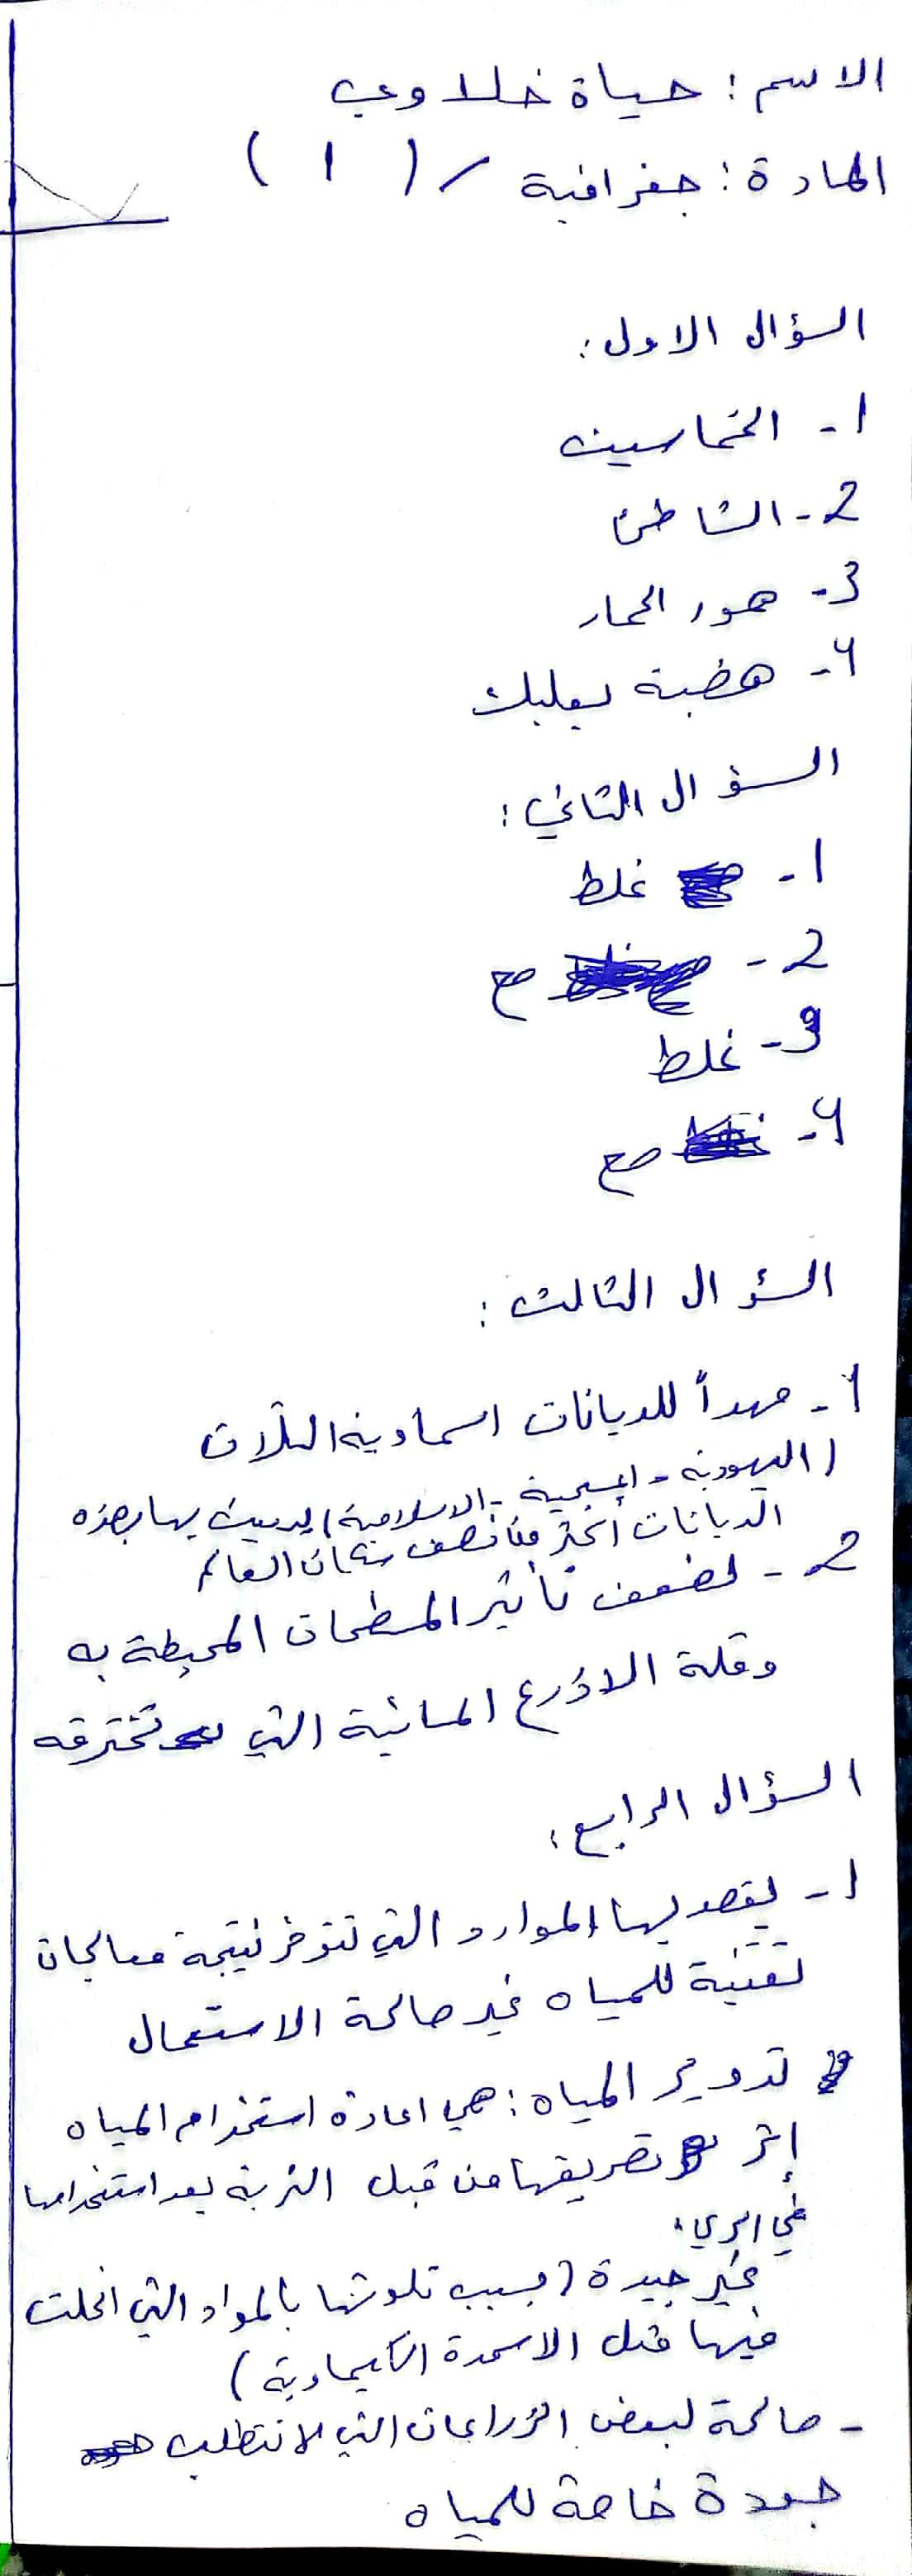 الاسم : حياة خلاوي
المادة : جغرافية / ( ١ )
السؤال الاول :
1- الخماسين
2- الشاطئ
3- هور الحمار
4- هضبة بعلبك
السؤال الثاني :
1- غلط
2- صح
3- غلط
4- صح
السؤال الثالث :
1- مهداً للديانات اسماوية الثلاث
( اليهودية - المسيحية - الاسلامية ) يدين بها بهذه
الديانات أكثر من نصف سكان العالم
2- لضعف تأثير المسطحات المحيطة به
وقلة الاذرع المائية التي تخترقه
السؤال الرابع :
1- يقصد بها الموارد التي تتوفر نتيجة معالجات
تقنية للمياه غير صالحة الاستعمال
تدوير المياه : هي اعادة استخدام المياه
إثر تصريفها من قبل التربة بعد استخدامها
في الري .
غير جيدة ( بسبب تلوثها بالمواد التي انحلت
فيها مثل الاسمدة الكيماوية )
- صالحة لبعض الزراعات التي لا تتطلب
جودة خاصة للمياه